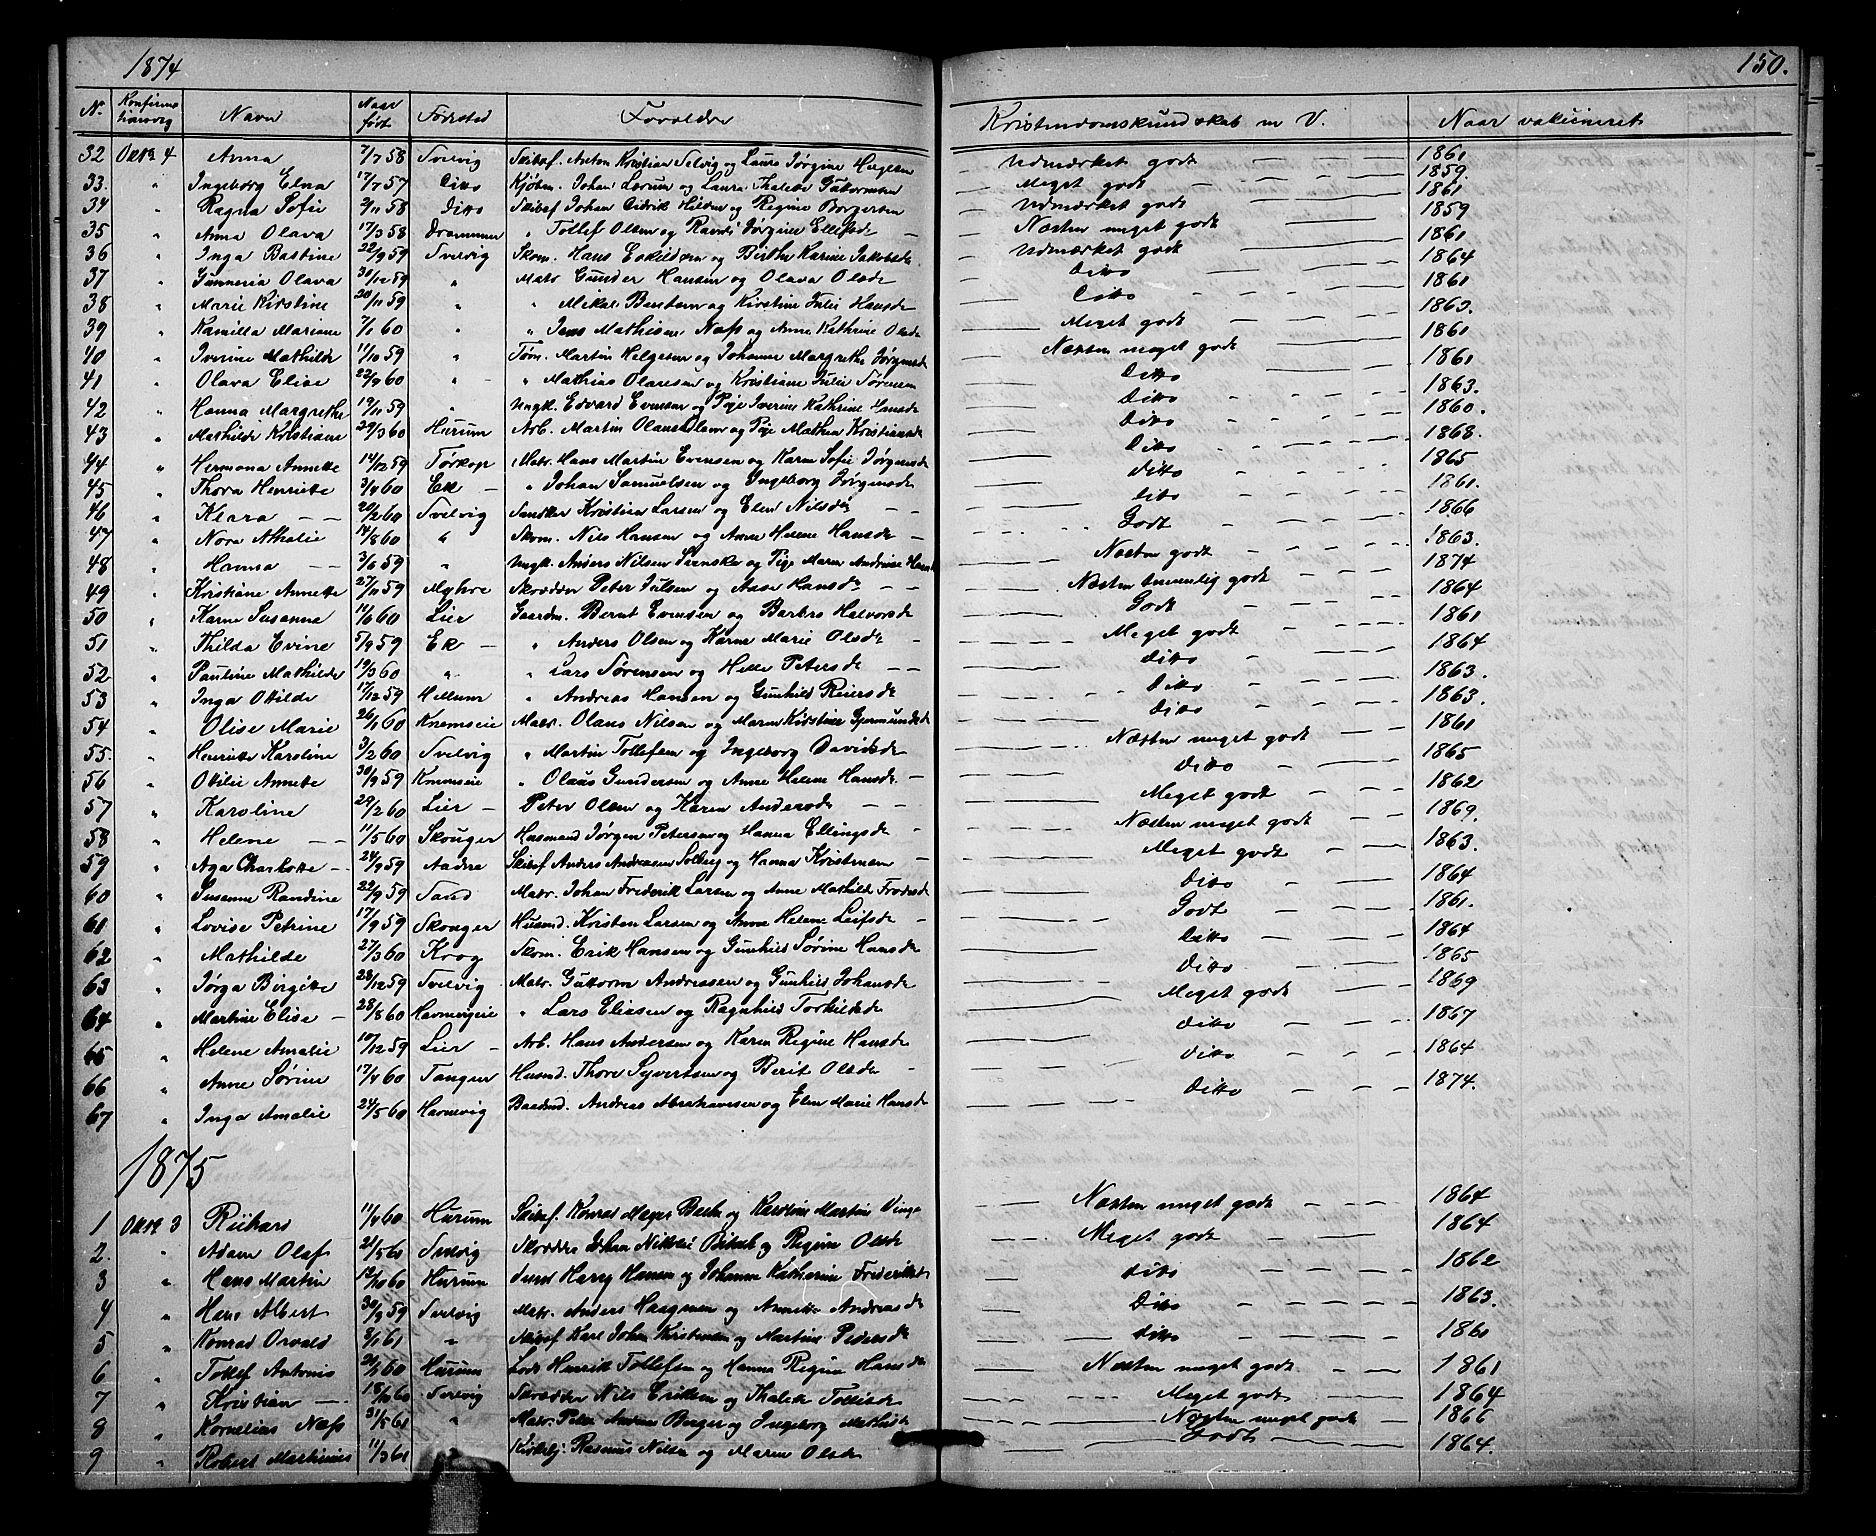 1874
150.
N. Konfirma tionsdag Navn Naar født Fødested Forældre Kristendomskundskab m V. Naar vakcineret
32 Octr 4 Anna 7/7 58 Svelvig Skibsf. Anton Kristian Selvig og Laura Jørgine Helgesen Udmærket godt 1861
33. " Ingeborg Elna 17/7 57 Ditto Kjøbm. Johan Lærum og Laura Thalette Guttormsen Meget godt 1859.
34 " Ragna Sofie 2/11 58 Ditto Skibsf Johan Hilsen og Regine Borgersen Udmærket godt 1861
35 " Anna Olava 17/3 58 Drammen " Tollef Olsen og Randi Jørgine Ellefsdr Næsten meget godt 1859
36 " Inga Bastine 22/9 59 Svelvig Skom. Hans Eskildsen og Berthe Karine Jakobsdr Udmærket godt 1861
37 " Gunneria Olava 30/12 59 " Matr Gunder Hansen og Olava Olsdr Ditto 1864
38 " Marie Kirstine 20/11 59 " " Mikal Berntsen og Kirstine Julie Hansdr Ditto 1861
39 " Kamilla Mariane 7/1 60 " " Jens Mathisen Næss og Anne Kathrine Olsdr Meget godt 1863.
40 " Iverine Mathilde 11/10 59 " Tøm. Martin Helgesen og Johanne Margrethe Jørgensdr Næsten meget godt 1861
41 " Olava Elise 22/9 60 " " Mathias Olavesen og Kristiane Julie Sørensen Ditto 1861
42 " Hanna Margrethe 19/11 59 " Ungk. Edvard Evensen og Pige Iverine Kathrine Hansdr Ditto 1863.
43 " Mathilde Kristiane 29/3 60 Hurum Arb. Martin Olaus Olsen og Pige Mathea Kristiansdr Ditto 1860.
44 " Hermana Annette 14/12 59 Tørkop Matr. Hans Martin Evensen og Karen Sofie Jørgensdr Ditto 1868.
45 " Thora Henriette 3/4 60 Ek " Johan Samuelsen og Ingeborg Jørgensdr Ditto 1865
46 " Klara 20/2 60 Svelvig Snedker Kristian Larsen og Elen Nilsdr Ditto 1861.
47 " Nora Athalie 14/8 60 " Skom. Nils Hansen og Anne Helene Hansdr Godt 1866
48 " Hanna 3/6 59 " Ungk. Anders Nilsen Svenske og Pige Maren Andrine Næsten godt 1863.
49 " Kristiane Annette 27/11 59 Myhre Skrædder Peter Julsen og Aase Hansdr Næsten temmelig godt 1874
50 " Karen Susanne 14/6 60 Lier Gaardm. Bernt Evensen og Barbro Halvorsdr Godt 1864
51 " Thilda Evine 5/9 59 Ek " Anders Olsen og Karen Marie Olsdr Meget godt 1861
52 " Pauline Mathilde 19/3 60 " " Lars Sørensen og Helle Petersdr Ditto 1864
53 " Inga Otilde 17/12 59 Hellum " Andreas Hansen og Gunhild Reiersdr Ditto 1863.
54 " Olise Marie 26/1 60 Knemseie Matr. Olaus Nilsen og Maren Kirstine Gjermundsdr Ditto 1863.
55. " Henriette Karoline 3/2 60 Svelvig " Martin Tollefsen og Ingeborg Davidsdr Næsten meget godt 1861
56 " Otilie Annette 30/9 59 Knemseie " Olaus Gundersen og Anne Helene Hansdr Ditto 1865
57 " Karoline 29/2 60 Lier Peter Olsen og Karen Andersdr Meget godt 1862
58 " Helene 11/5 60 Skouger Husmand Jørgen Petersen og Hanna Ellingsdr Næsten meget godt 1869.
59 " Aga Charlotte 24/9 59 Aadne Skibsf Anders Andreasen Solberg og Hanna Kristensen Meget godt 1863.
60 " Susanne Randine 22/9 59 Sand Matr. Johan Frederik Larsen og Anne Mathilde Ditto 1864
61 " Lovise Petrine 17/9 59 Skouger Husmd. Kristen Larsen og Anne Helene Leifsdr Godt 1861.
62 " Mathilde 27/3 60 Krog Skom. Erik Hansen og Gunhild Sørine Hansdr Ditto 1864
63 " Jørga Birgitte 28/12 59 Svelvig Matr. Guttorm Andreassen og Gunhild Johansdr Ditto 1865
64 " Martine Elise 28/8 60 Havnevigeie " Lars Eliasen og Ragnhild Torkildsdr Meget godt 1869
65 " Helene Amalie 10/12 59 Lier Arb. Hans Andersen og Karen Regine Hansdr Ditto 1867
66 " Anne Sørine 17/4 60 Tangen Husmd. Thore Syvertsen og Berit Olsdr Ditto 1864
67 " Inga Amalie 24/5 60 Havnevig Baadmd. Andreas Abrahamsen og Elen Marie Hansdr Ditto 1874.
1875
1 Octbr 3 Rikhard 11/4 60 Hurum Skibsf. Konrad Meyer Bech og Karoline Martine Vinge Næsten meget godt 1864
2. " Adam Olaf 21/5 60 Svelvig Skrædder Johan Nikolai og Regine Olsdr Meget godt 1864
3 " Hans Martin 12/10 60 Hurum Harry Hansen og Johanne Katharine Frederiksdr Ditto 1862
4 " Hans Albert 30/9 59 Svelvig Matr. Anders Haagensen og Annette Andreasdr Ditto 1863.
5 " Konrad Osvald 3/1 61 " Skibsf Karl Johan Kristensen og Martine Pedersdr Ditto 1860
6 " Tollef Antonio 20/2 60 Hurum Lods Henrik Tollefsen og Hanna Regine Hansdr Næsten meget godt 1861
7 " Kristian 18/10 60 Svelvig Skrædder Nils Eriksen og Thalette Tollefsdr Meget godt 1864
8 " Kornelius Næss 31/5 61 " Matr. Peter Berger og Ingeborg Mathisdr Næsten meget godt 1866
9 " Robert Mathinius 11/3 61 Rasmus Nilsen og Maren Olsdr Godt 1864.